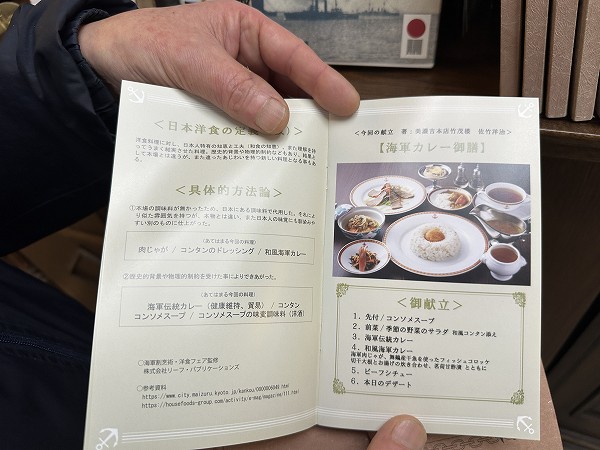 ＜日本洋食の定義
洋食料理に対し、日本人特有の知恵と工夫（和食の知恵）、また理解を持
ってうまく結実させた料理。歴史的背景や物理的制約なども
して本場とは違うが、また違ったあじわいを持つ新しい料理となる事も
ある。
＜具体的方法論＞
①本場の調味料が無かったため、日本にある調味料で代用した。それによ
り似た雰囲気を持つが、本物とは違い、また日本人の味覚にも
すい別のものに仕上がった。
（あてはまる今回の料理）
肉じゃが / コンタンのドレッシング / 和風海軍カレー
②歴史的背景や物理的制約を受けた事によりできあがった。
（あてはまる今回の料理）
海軍伝統カレー（健康維持、貿易） / コンタン
コンソメスープ / コンソメスープの味変調味料（洋酒）
○海軍割烹術・洋食フェア監修
株式会社リーフ・パブリケーションズ
○参考資料
https://www.city.maizuru.kyoto.jp/kankou/0000006949.html
https://housefoods-group.com/activity/e-mag/magazine/111.html
＜今回の献立　著：美盛吉本店竹茂楼　佐竹洋治＞
【海軍カレー御膳】
＜御献立＞
１．先付／コンソメスープ
２．前菜／季節の野菜のサラダ 和風コンタン添え
３．海軍伝統カレー
４．和風海軍カレー
海軍肉じゃが、舞鶴産干魚を使ったフィッシュコロッケ
切干大根とお揚げの炊き合わせ、茗荷甘酢漬 とともに
５．ビーフシチュー
６．本日のデザート